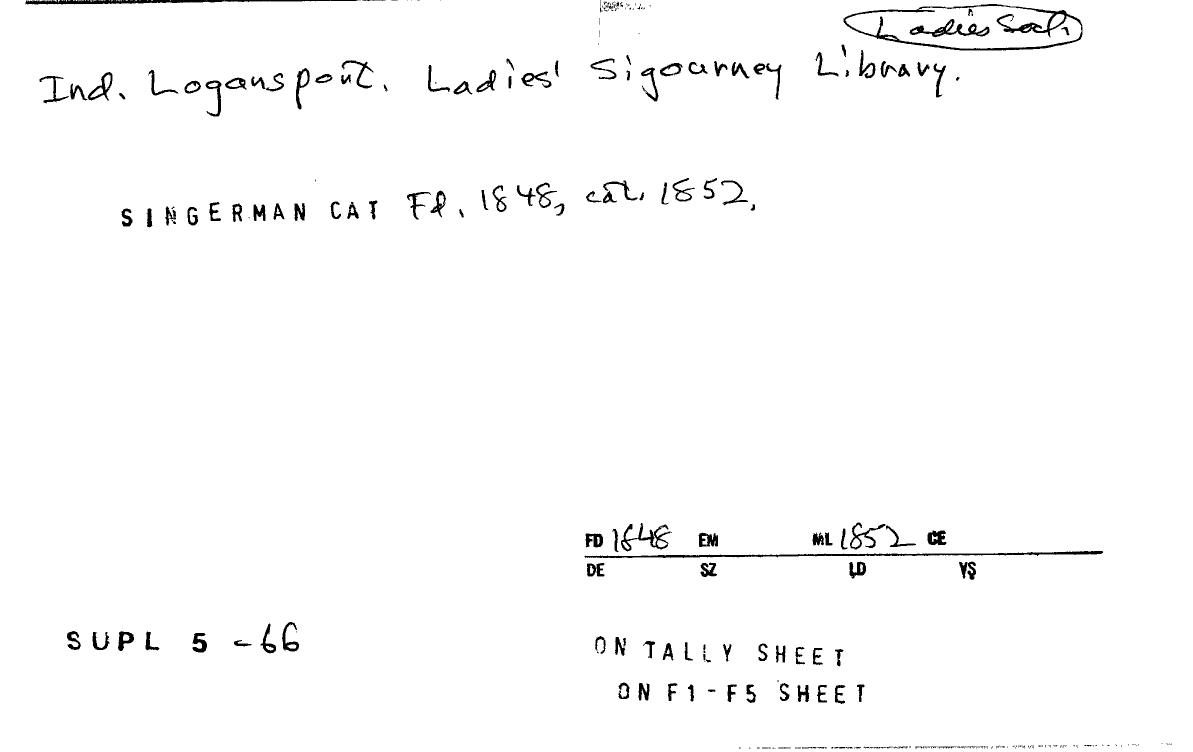 Ladies Soc.
Ind. Logansport. Ladies' Sigourney Library.
SINGERMAN CAT Fd. 1848, cat. 1852.
FD 1848 EM ML 1852 CE
DE SZ LD VS
SUPL 5 -66
ON TALLY SHEET
ON F1-F5 SHEET